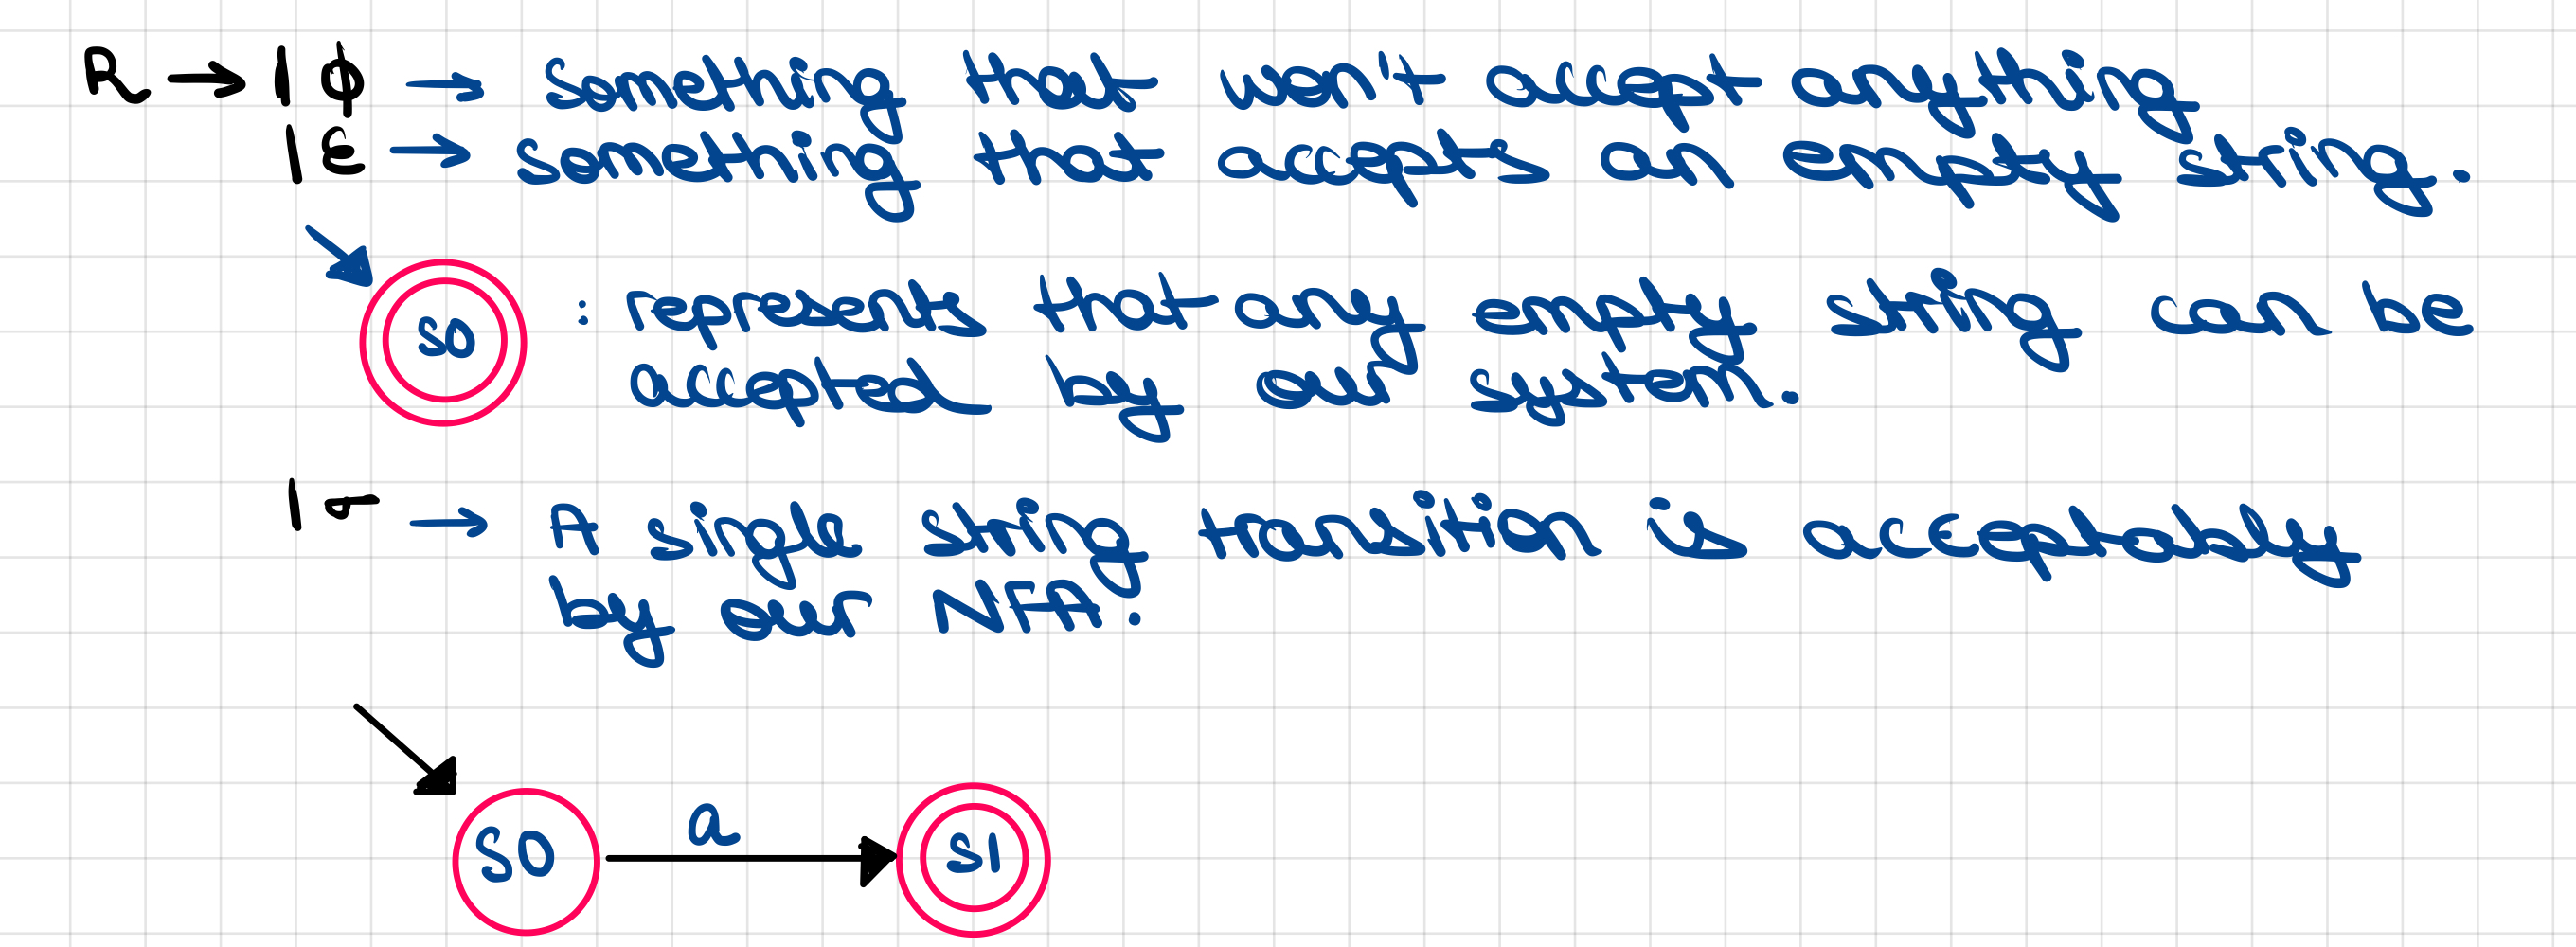 R → | ϕ → something that won't accept anything
| ε → something that accepts an empty string.
S0 : represents that any empty string can be
accepted by our system.
| σ → A single string transition is acceptably
by our NFA.
a
S0 S1